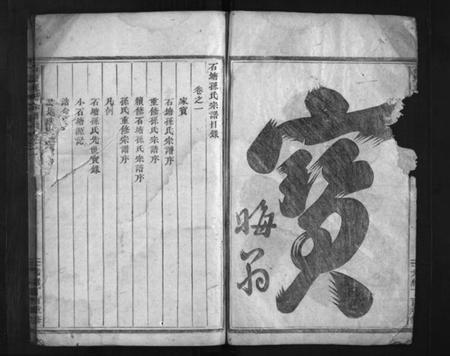 寶
晦翁
石塘孫氏宗譜目錄
卷之一
家寶
石塘孫氏宗譜序
重修孫氏宗譜序
續修石塘孫氏宗譜序
孫氏重修宗譜序
凡例
石塘孫氏先世實錄
小石塘源記
誥命